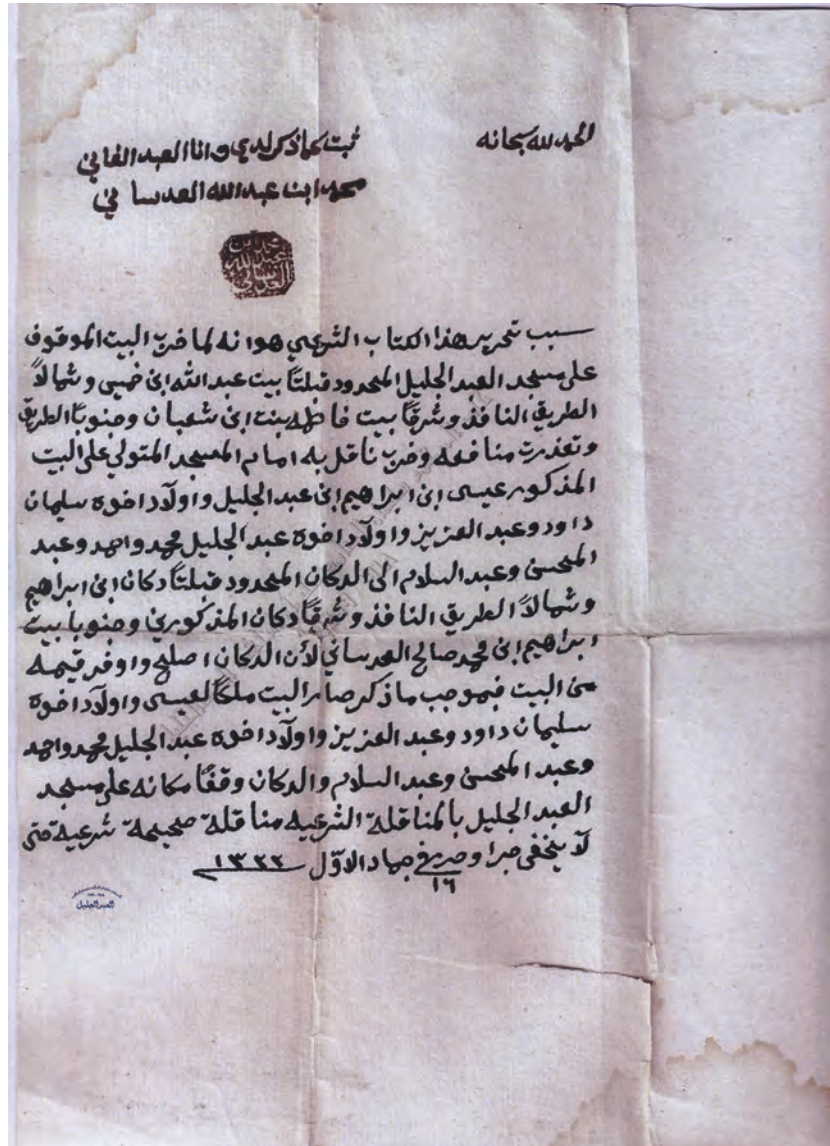 الحمد لله سبحانه
ثبت كما ذكر لدي وانا العبد الفاني
محمد ابن عبد الله العدساني
سبب تحرير هذا الكتاب الشرعي هو انه لما خرب البيت الموقوف
على مسجد العبد الجليل المحدود قبلتاً بيت عبد الله ابن خميس وشمالاً
الطريق النافذ وشرقاً بيت فاطمه بنت ابن شعبان وجنوباً الطريق
وتعذرت منافعه وخرب ناقل به امام المسجد المتولي على البيت
المذكور عيسى ابن ابراهيم ابن عبد الجليل واولاد اخوه سليمان
داود وعبد العزيز واولاد اخوه عبد الجليل محمد واحمد وعبد
المحسن وعبد السلام الى الدكان المحدود قبلتاً دكان ابن ابراهيم
وشمالاً الطريق النافذ وشرقاً دكان المذكورين وجنوبا بيت
ابراهيم ابن محمد صالح العدساني لأن الدكان اصلح واوفر قيمه
من البيت فبموجب ما ذكر صار البيت ملكاً لعيسى واولاد اخوه
سليمان داود وعبد العزيز واولاد اخوه عبد الجليل محمد واحمد
وعبد المحسن وعبد السلام والدكان وقفاً مكانه على مسجد
العبد الجليل بالمناقلة الشرعيه مناقلة صحيحة شرعية حتى
لا يخفى جرا وحرر في ١٦ جماد الاوّل ١٣٢٢
العبد الجليل